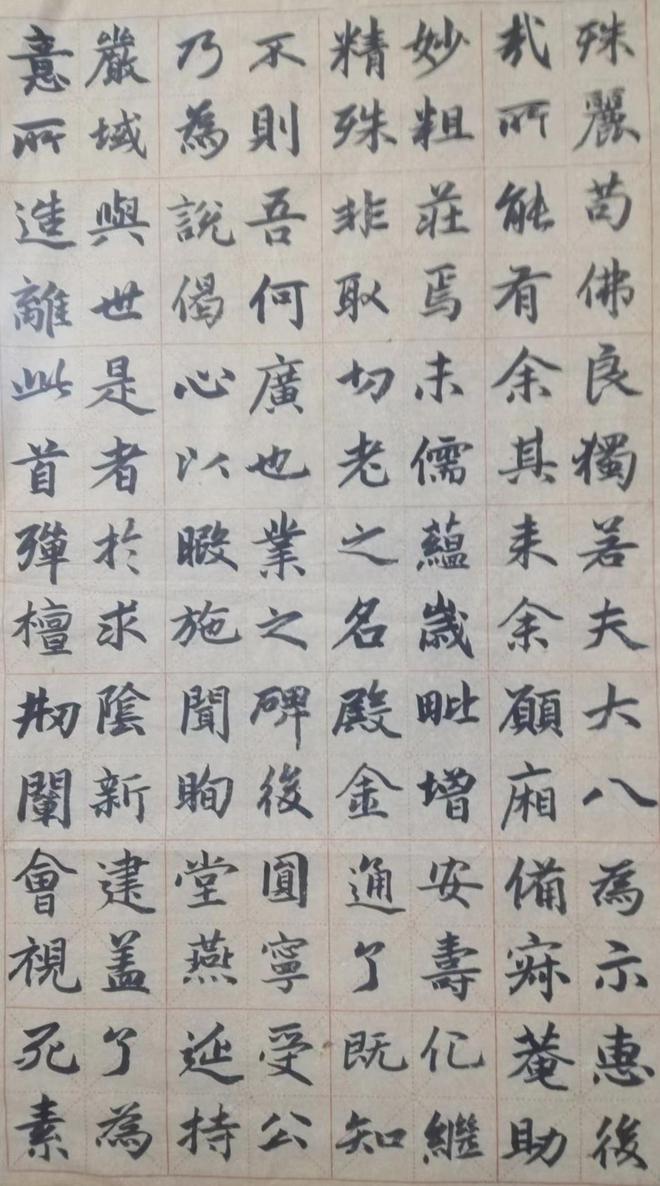 殊麗苟佛良獨若夫大八為示惠後
哉所能有余其来余願廂備寂菴助
妙粗莊焉未儒蘊嵗毗增安壽化繼
精殊非取切老之名殿金通了既知
不則吾何廣也業之碑後圓寧受公
乃為說偈心以暇施聞眴堂燕延持
嚴域與世是者於求陰新建盖了為
意所造離此首彈檀刱闡會視死素